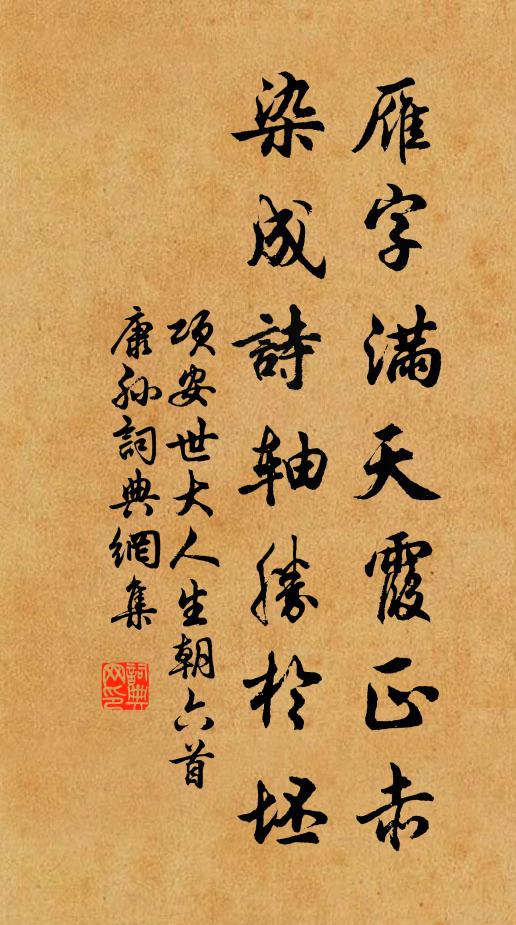 雁字满天霞正赤
染成詩轴勝於坯
项安世大人生朝六首
康孙詞典網集
詞典网印